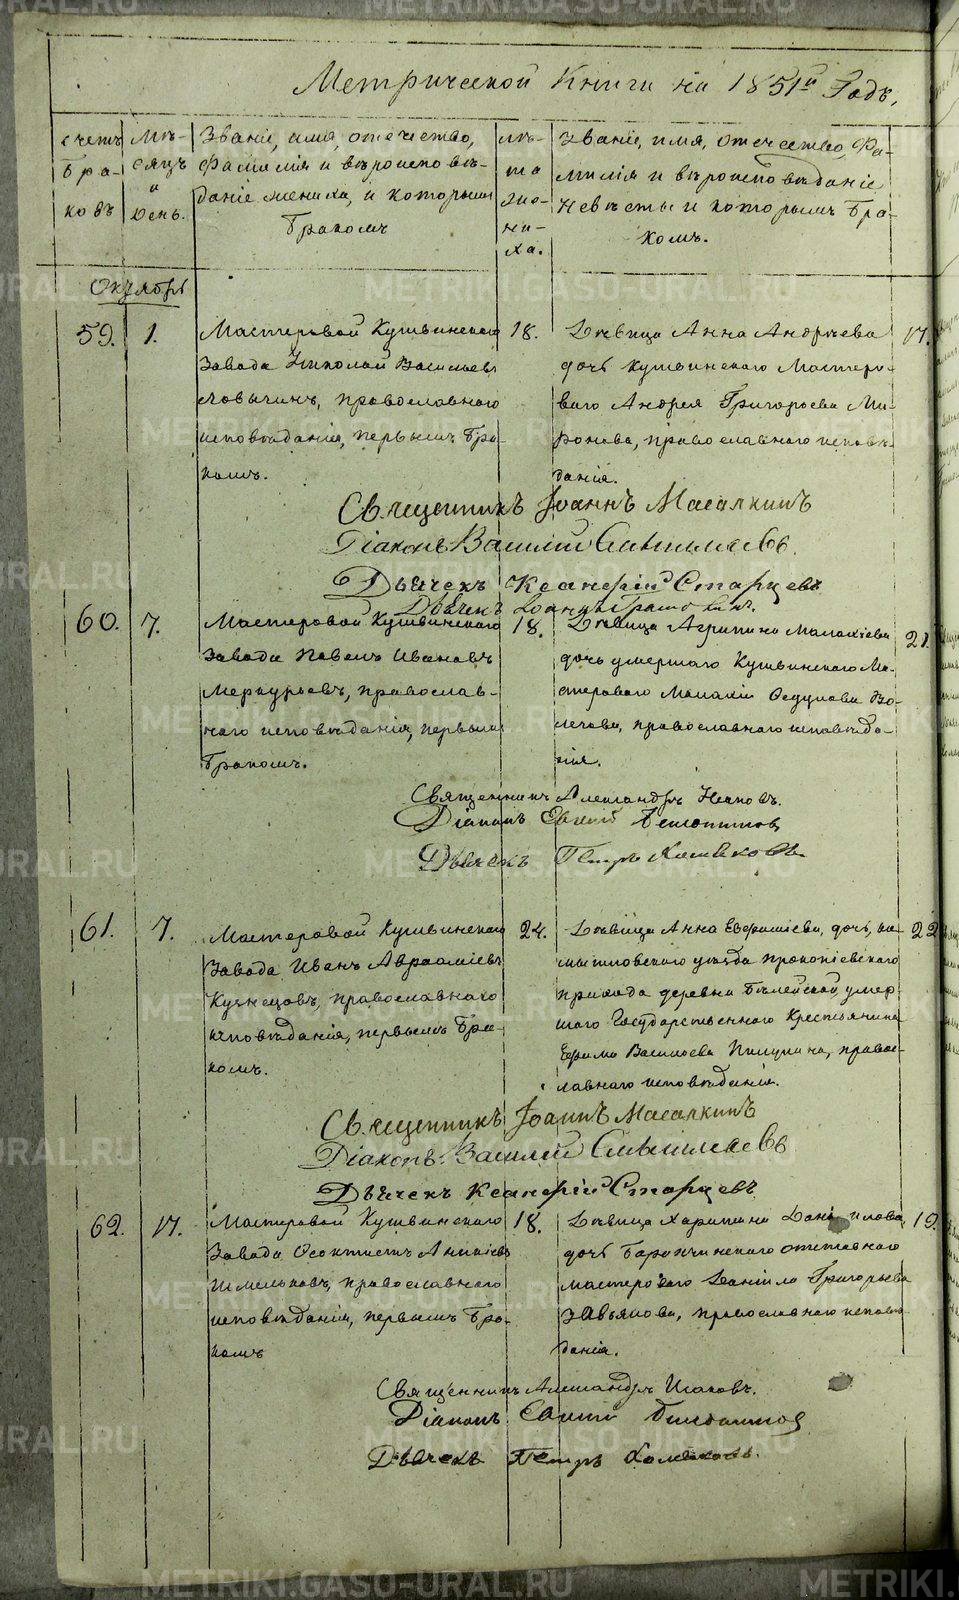 Метрической Книги на 1851й Годъ,
счетъ Браковъ
Мѣсяцъ и день.
Званіе, имя, отечество,
Фамилія и вѣроисповѣ-
даніе жениха, и которымъ
Бракомъ
лѣта жениха.
Званіе, имя, отечество, Фа-
милія и вѣроисповѣданіе
Невѣсты и которымъ Бра-
комъ.
Октябрь
59. 1.
Мастеровой Кушвинскаго
Завода Николай Васильевъ
православнаго
исповѣданія, первымъ Бра-
комъ.
18.
Дѣвица Анна Андреева
дочь Кушвинскаго Мастеро-
ваго Андрея Григорьева Ми-
ронова, православнаго исповѣ-
данія.
17.
Священникъ Іоаннъ Масалкинъ
Діаконъ Василій
Дьячекъ Ксанфій Старцевъ
Дьячекъ Іоаннъ
60. 7.
Мастеровой Кушвинскаго
Завода Павелъ Ивановъ
Меркурьевъ, православ-
наго исповѣданія, первымъ
Бракомъ.
18.
Дѣвица Агрипина Малахіева
дочь умершаго Кушвинскаго Ма-
стероваго Малахіи
православнаго исповѣда-
нія.
21.
Священникъ Александръ
Діаконъ Евгеній
Дьячекъ Петръ Хомяковъ
61. 7.
Мастеровой Кушвинскаго
Завода Иванъ Авраамiевъ
Кузнецовъ, православнаго
исповѣданія, первымъ Бра-
комъ.
24.
Дѣвица Анна Ефимiева, дочь, ка-
мышловскаго уѣзда Прокопіевскаго
прихода деревни Бѣлейской, умер-
шаго Государственнаго Крестьянина
Ефима Васильева Пичугина, правос-
лавнаго исповѣданія.
22
Священникъ Іоаннъ Масалкинъ
Діаконъ Василій
Дьячекъ Ксанфій Старцевъ
62. 17.
Мастеровой Кушвинскаго
Завода Ѳеоктистъ Аникіевъ
Шмельковъ, православнаго
исповѣданія, первымъ Бра-
комъ
18.
Дѣвица Харитина Данилова,
дочь Баранчинскаго отставнаго
мастероваго Даніила Григорьева
Завьялова, православнаго исповѣ-
данія.
19.
Священникъ Александръ
Діаконъ Евгеній
Дьячекъ Петръ Хомяковъ.
METRIKI.GASO-URAL.RU